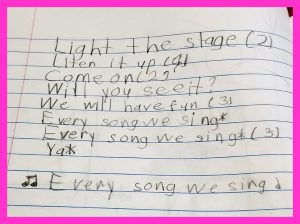 Light the stage (2)
Liten it up (4)
Come on (2)
Will you see it?
We will have fun (3)
Every song we sing*
Every song we sing* (3)
Ya*
♫ Every song we sing ♩